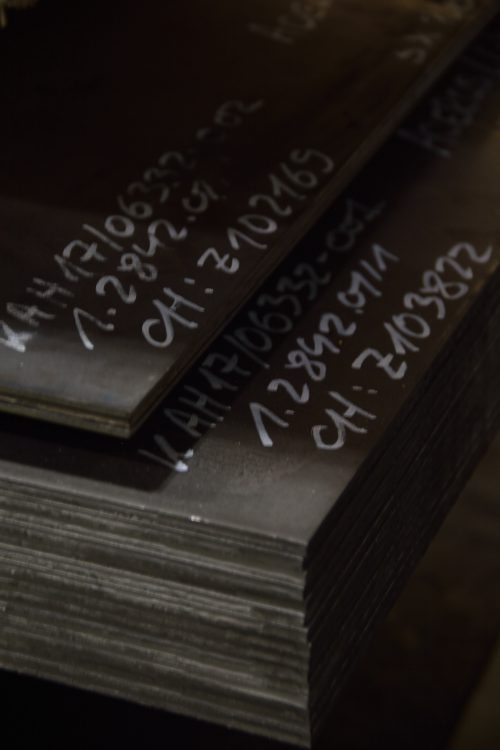 KAH17/06332-002
1.2842.01
CH: Z102169
KAH17/06332-001
1.2842.01/1
CH: Z103822